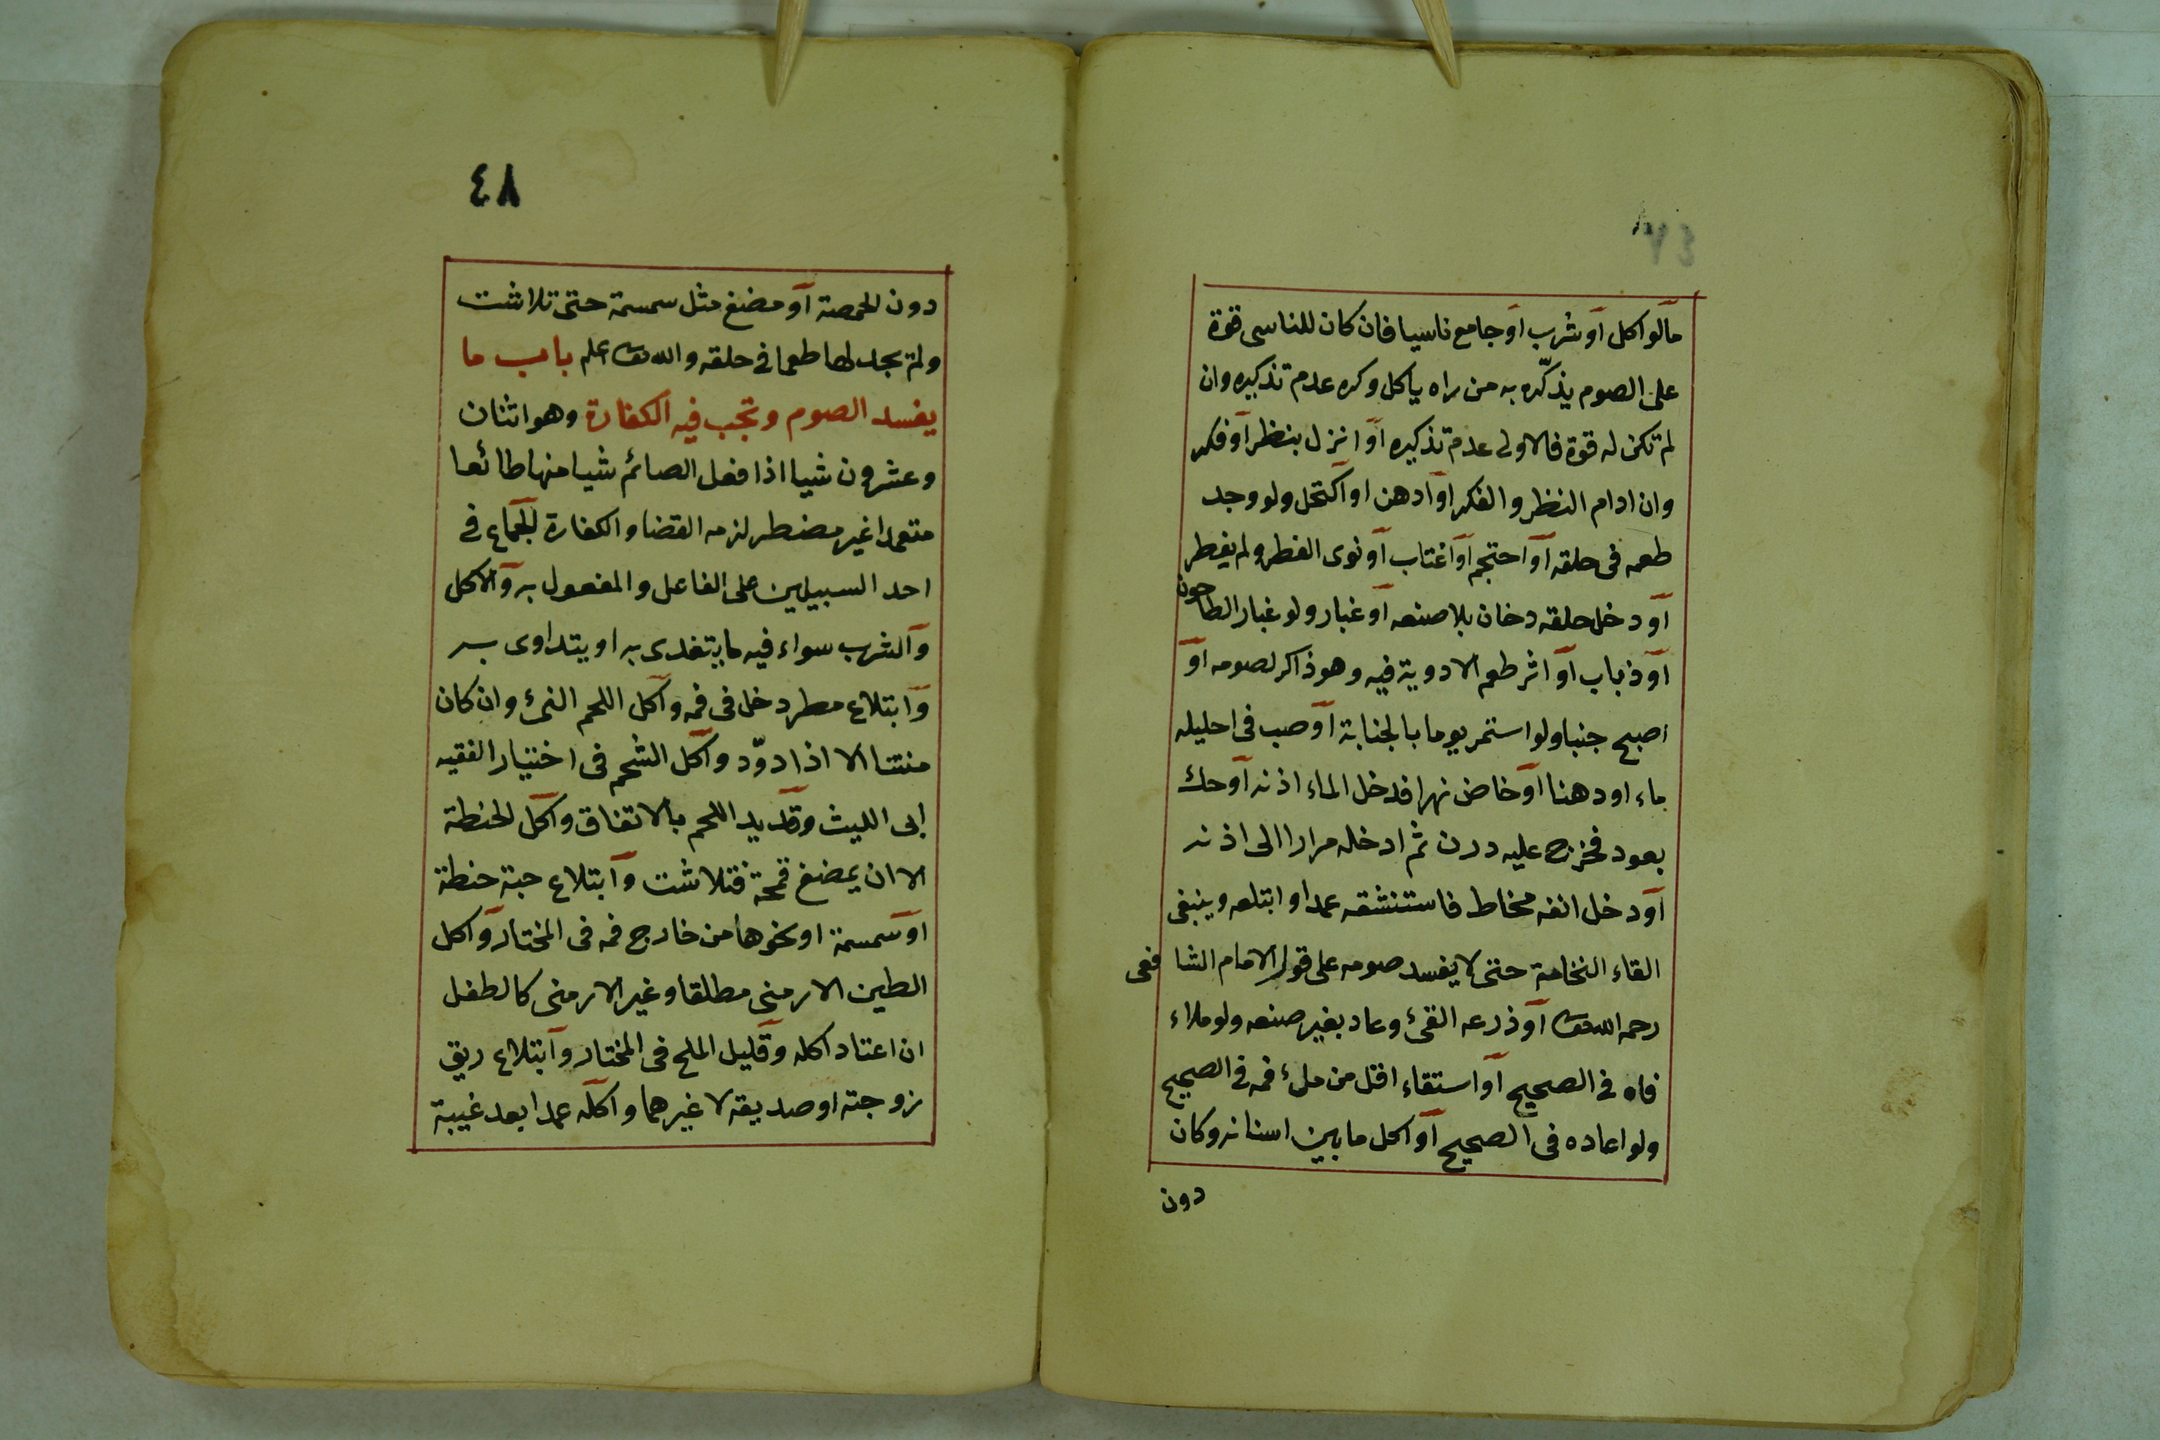 مالو اكل او شرب او جامع ناسيا فان كان للناسى قوة
على الصوم يذكّره به من راه ياكل وكره عدم تذكيره وان
لم تكن له قوة فالاولى عدم تذكيره او انزل بنظر او فكر
وان ادام النظر والفكر او ادهن او اكتحل ولو وجد
طعمه فى حلقه او احتجم او اغتاب او نوى الفطر ولم يفطر
او دخل حلقه دخان بلا صنعه او غبار ولو غبار الطاحون
او ذباب او اثر طعم الادوية فيه وهو ذاكر لصومه او
اصبح جنبا ولو استمر يوما بالجنابة او صب فى احليله
ماء او دهنا او خاض نهرا فدخل الماء اذنه او حك
بعود فخرج عليه درن ثم ادخله مرارا الى اذنه
او دخل انفه مخاط فاستنشقه عمدا وابتلعه وينبغى
القاء النخامة حتى لا يفسد صومه على قول الامام الشا فعى
رحمه الله تعا او ذرعه القئ وعاد بغير صنعه ولو ملاء
فاه فى الصحيح او استقاء اقل من ملئ فمه فى الصحيح
ولو اعاده فى الصحيح او اكل ما بين اسنانه وكان
دون
٤٨
دون الحمصة او مضغ مثل سمسمة حتى تلاشت
ولم يجد لها طعما فى حلقه والله تعا اعلم باب ما
يفسد الصوم وتجب فيه الكفارة وهو اثنان
وعشرون شيا اذا فعل الصائم شيا منها طائعا
متعمدا غير مضطر لزمه القضا والكفارة الجماع فى
احد السبيلين على الفاعل والمفعول به والاكل
والشرب سواء فيه ما يتغدى به او يتداوى به
وابتلاع مطر دخل فى فمه واكل اللحم النئ وان كان
منتنا الا اذا دوّد واكل الشحم فى اختيار الفقيه
ابى الليث وقديد اللحم بالاتفاق واكل الحنطة
الا ان يمضغ قمحة فتلاشت وابتلاع حبة حنطة
او سمسمة او نحوها من خارج فمه فى المختار واكل
الطين الارمنى مطلقا وغير الارمنى كالطفل
ان اعتاد اكله وقليل الملح فى المختار وابتلاع ريق
زوجته او صديقه لا غيرهما واكله عمدا بعد غيبة